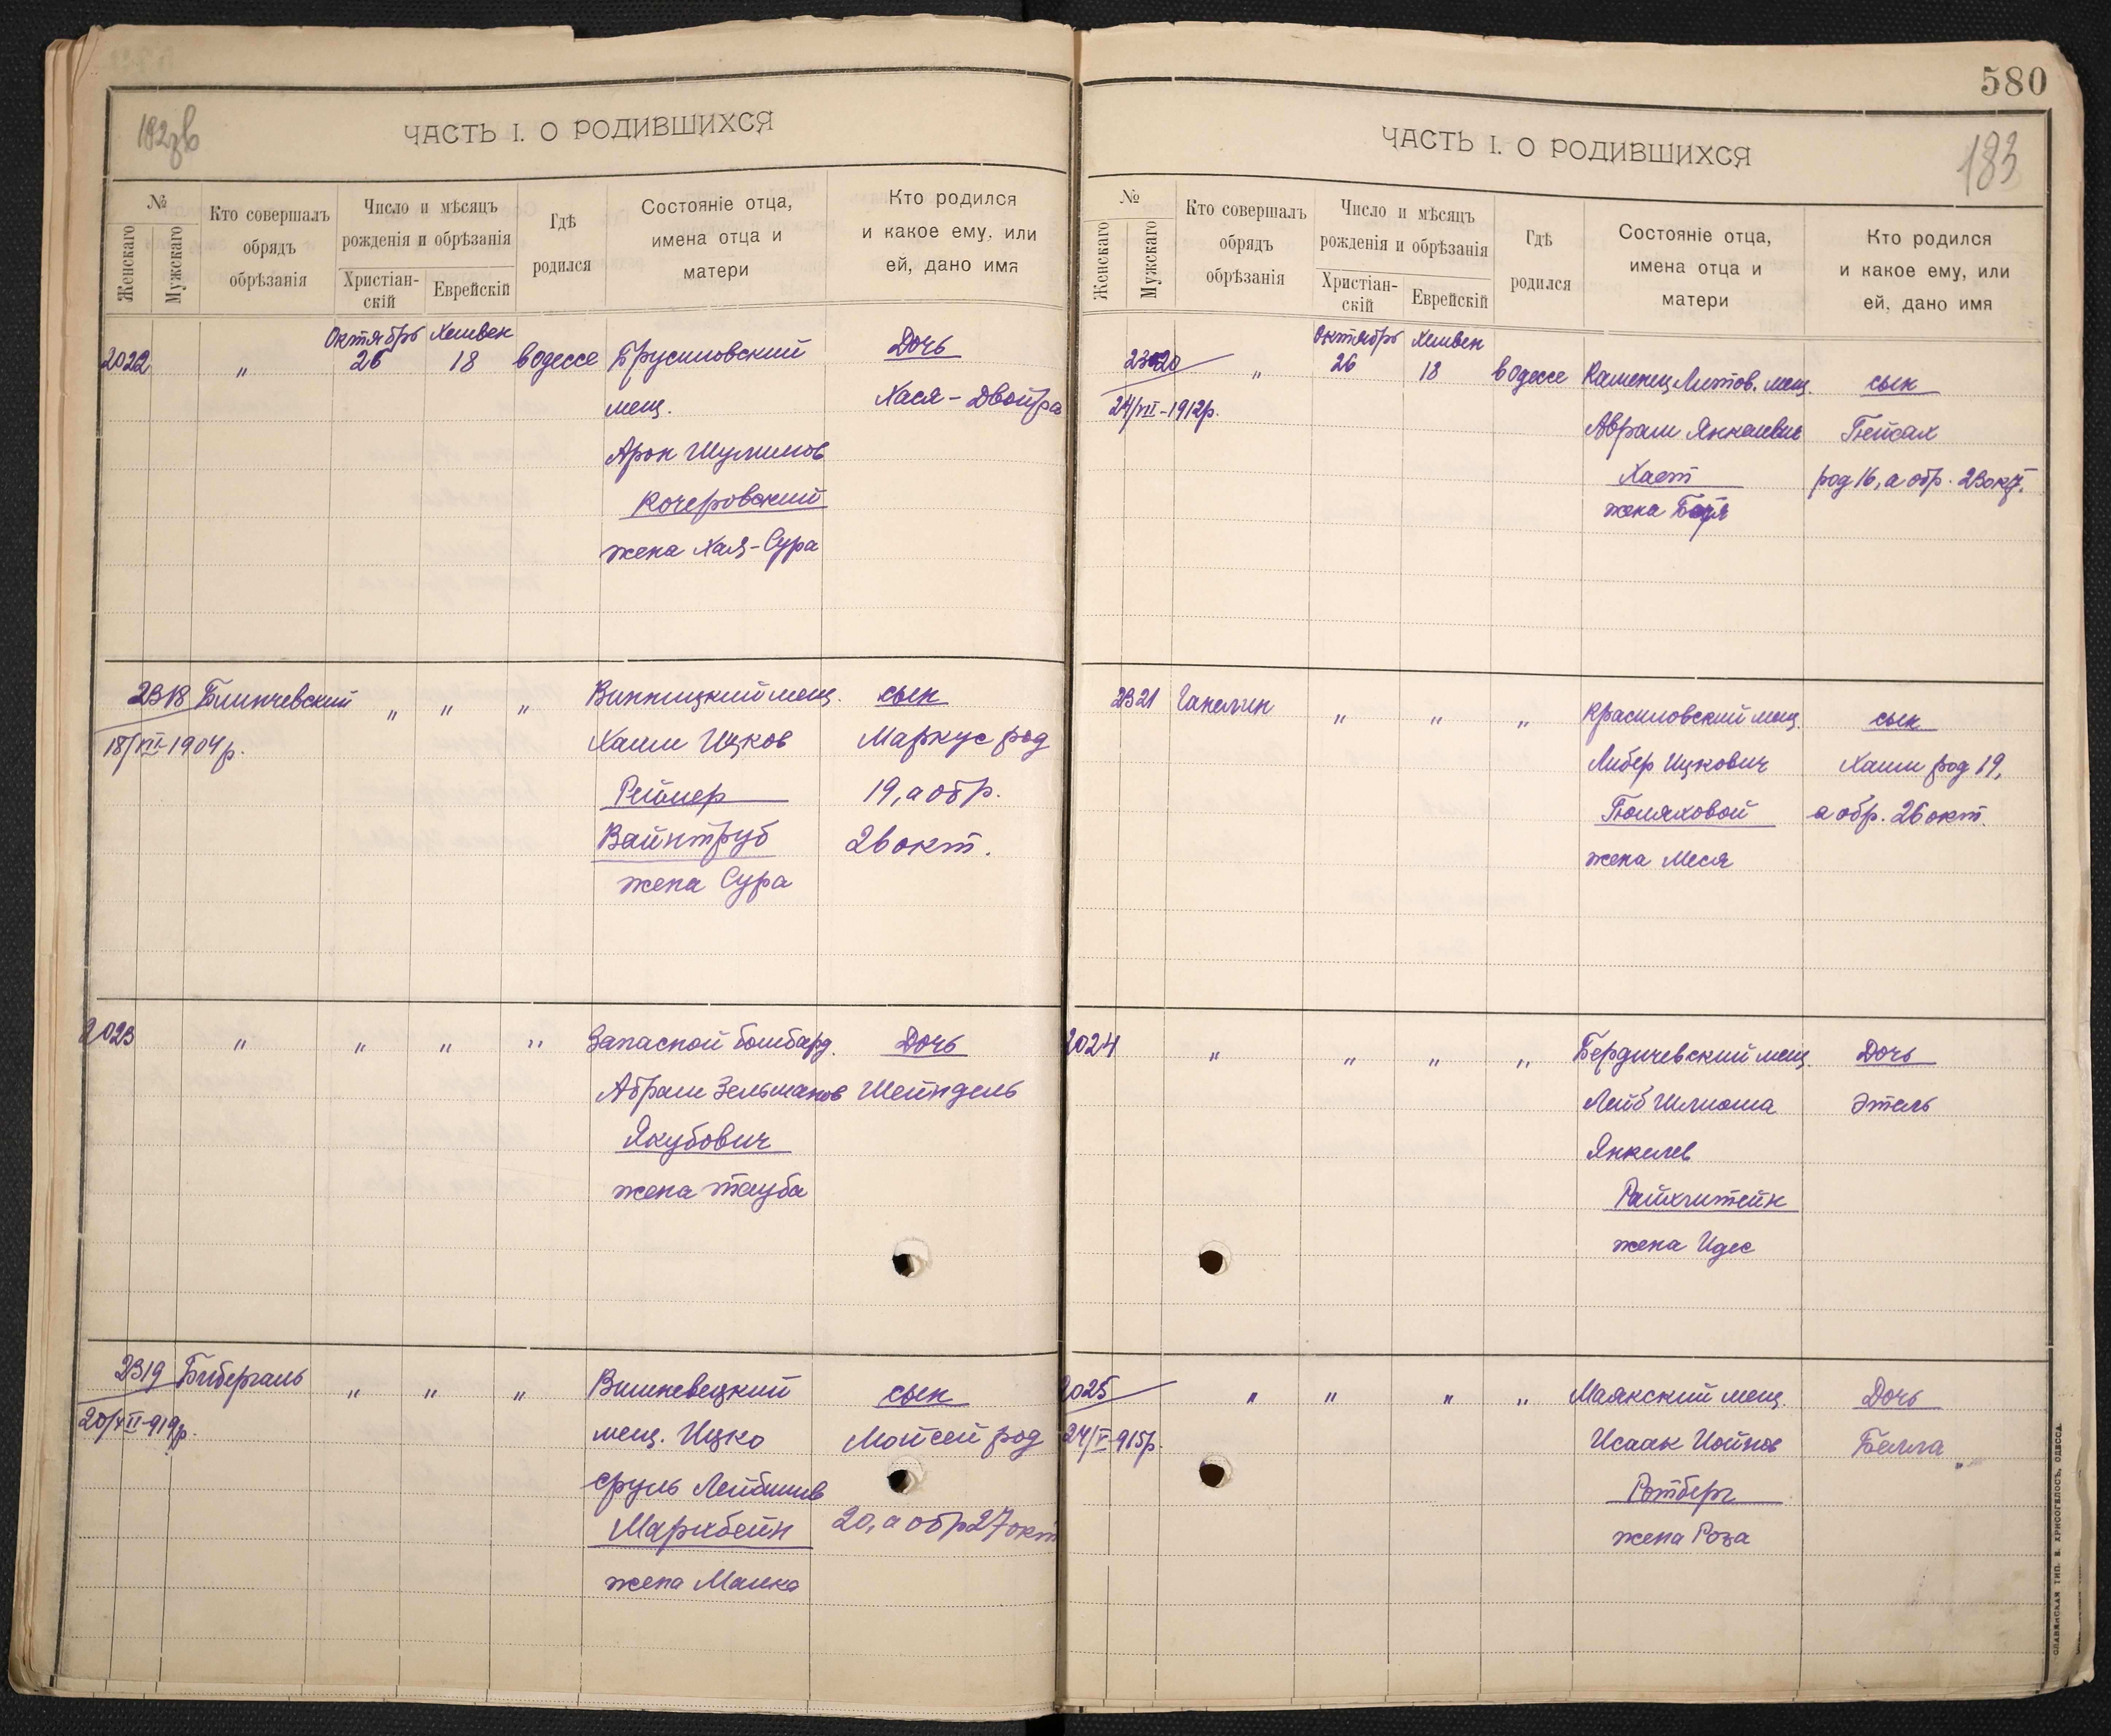 182зв
ЧАСТЬ I. О РОДИВШИХСЯ
№
Женскаго
Мужскаго
Кто совершалъ
обрядъ
обрѣзанія
Число и мѣсяцъ
рожденія и обрѣзанія
Христіан-
скій
Еврейскій
Гдѣ
родился
Состояніе отца,
имена отца и
матери
Кто родился
и какое ему, или
ей, дано имя
Октябрь Хешвен
2022 " 26 18 в Одессе Брусиловский Дочь
мещ. Хася-Двойра
Арон Шулимов
Кочеровский
жена Хая-Сура
2318 Блинчевский " " " Винницкий мещ. сын
18/XII-1904 р. Хаим Ицков Маркус род
Реймер 19, а обр.
Вайнтруб 26 окт.
жена Сура
2023 " " " " Запасной бомбард. Дочь
Абрам Зельманов Шейндель
Якубович
жена Тауба
2319 Бибергаль " " " Вишневецкий сын
20/XII-919р. мещ. Ицко Мойсей род
Сруль Лейбишив 20, а обр 27 окт
Маркбейн
жена Малка
580
183
ЧАСТЬ I. О РОДИВШИХСЯ
№
Женскаго
Мужскаго
Кто совершалъ
обрядъ
обрѣзанія
Число и мѣсяцъ
рожденія и обрѣзанія
Христіан-
скій
Еврейскій
Гдѣ
родился
Состояніе отца,
имена отца и
матери
Кто родился
и какое ему, или
ей, дано имя
Октябрь Хешвен
2320 " 26 18 в Одессе Каменец Литов. мещ. сын
24/VII-1912р. Аврам Янкелевич Пейсах
Хает род 16, а обр. 23 окт.
жена Бася
2321 Ганелин " " " Красиловский мещ. сын
Либер Ицкович Хаим род 19,
Поляховой а обр. 26 окт.
жена Меся
2024 " " " " Бердичевский мещ. Дочь
Лейб Шлиома Этель
Янкелев
Райхштейн
жена Идес
2025 " " " " Маякский мещ. Дочь
24/V-915р. Исаак Иойнов Белла
Ротберг
жена Роза
СЛАВЯНСКАЯ ТИП. Н. ХРИСОГЕЛОСЪ, ОДЕССА